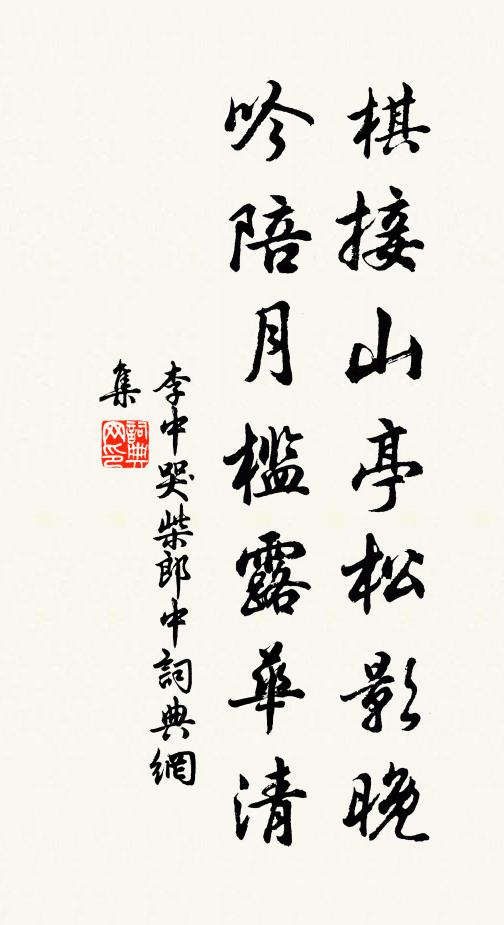 棋接山亭松影晚
吟陪月檻露華清
李中哭柴郎中詞典網
集
詞典网印